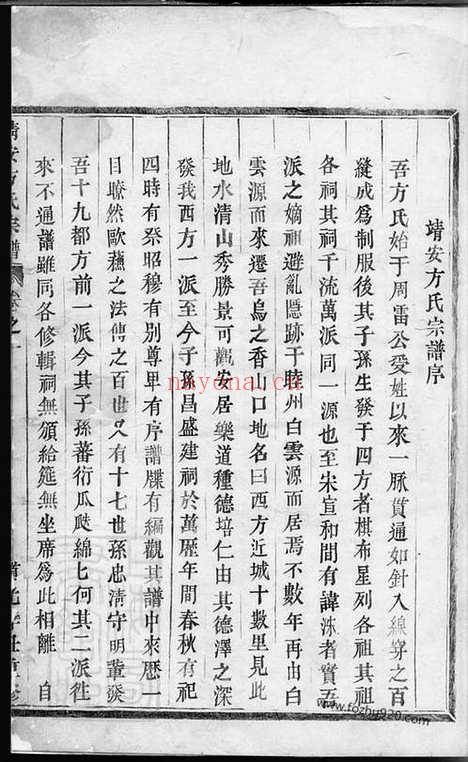 靖安方氏宗譜序
吾方氏始于周雷公受姓以來一脈貫通如針入線穿之百
縫成為制服後其子孫生發于四方者棋布星列各祖其祖
各祠其祠千流萬派同一源也至宋宣和間有諱洙者實吾
派之嫡祖避亂隱跡于睦州白雲源而居焉不數年再由白
雲源而來遷吾烏之香山口地名曰西方近城十數里見此
地水清山秀勝景可觀安居樂道種德培仁由其德澤之深
發我西方一派至今子孫昌盛建祠於萬歷年間春秋有祀
四時有祭昭穆有别尊卑有序譜牒有編觀其譜中來歷一
目瞭然歐蘓之法傳之百世又有十七世孫忠清守明輩發
吾十九都方前一派今其子孫蕃衍瓜瓞綿匕何其二派徃
來不通譜雖同各修輯祠無頒給筵無坐席為此相離 自
靖安方氏宗譜 卷之一
nayona.cn
www.fozhu920.com